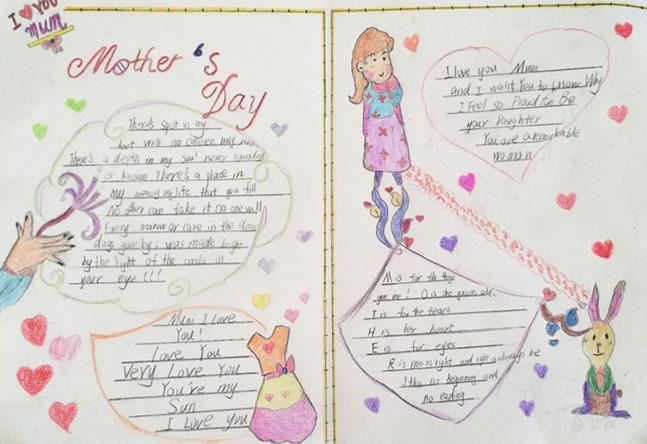 I ❤ YOU
MUM
Mother's
Day
There's spot in my
heart with no
There's a depth in my soul never sounded
or known There's a place in
my memory my life that you fill
No other can take it no one will
Every sorrow or care in the dear
days gone by was made bright
by the light of the smile in
your eye !!!
Mum I Love
You!
Love You
Very Love You
You're my
Sun
I Love you
I love you Mum
and I want You to know Why
I Feel so Proud To Be
your Daughter
You are a
Woman
M is for the
gave me! O is she
T is for the tears
H is her heart
E is for eyes
R is right and always be
no beginning and
no ending